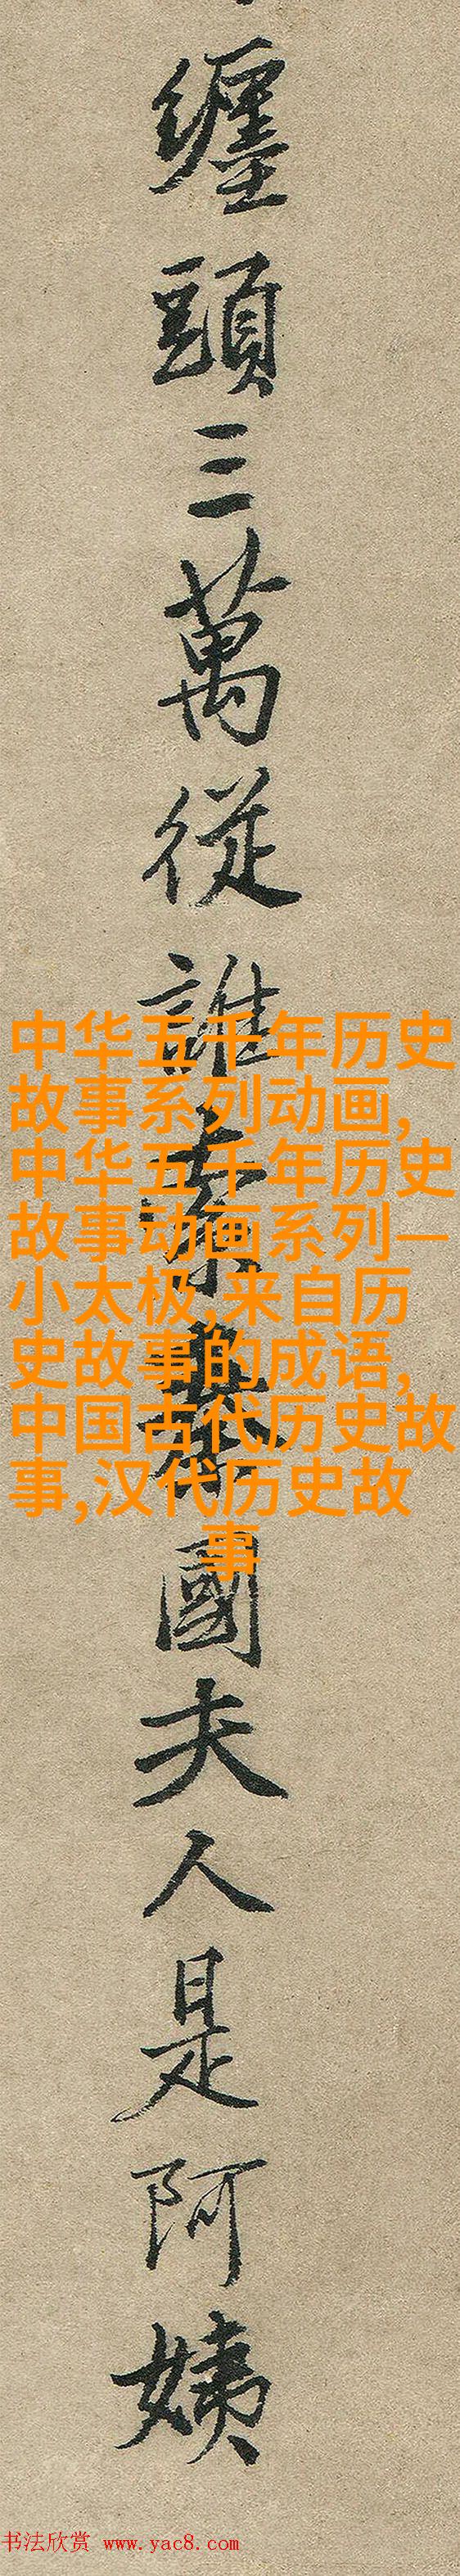 纏頭三萬從誰索秦國夫人是阿姨
中华五千年历史
故事系列动画,
中华五千年历史
故事动画系列—
小太极,来自历
史故事的成语,
中国古代历史故
事,汉代历史故
事
书法欣赏 www.yac8.com